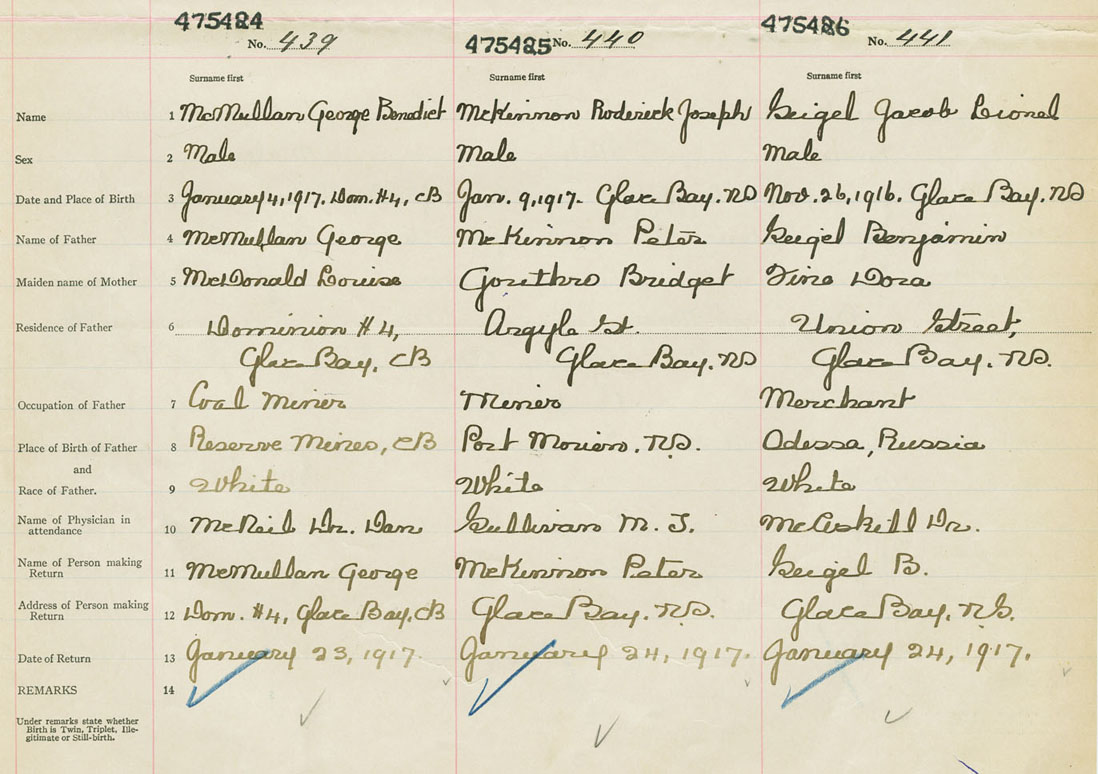 475484 475485 475486
No. 439 No. 440 No. 441
Surname first Surname first Surname first
Name 1 McMullan George Benedict McKinnon Roderick Joseph Seigel Jacob Lionel
Sex 2 Male Male Male
Date and Place of Birth 3 January 4, 1917. Dom. #4, CB Jan. 9, 1917. Glace Bay. NS Nov. 26, 1916. Glace Bay. NS
Name of Father 4 McMullan George McKinnon Peter Seigel Benjamin
Maiden name of Mother 5 McDonald Louise Bridget Dora
Residence of Father 6 Dominion #4, Argyle St. Union Street,
Glace Bay, CB Glace Bay. NS Glace Bay. NS.
Occupation of Father 7 Coal Miner Miner Merchant
Place of Birth of Father 8 Reserve Mines, CB Port Morien. NS. Odessa, Russia
and
Race of Father. 9 White White White
Name of Physician in
attendance 10 McNeil Dr. Dan Sullivan M. J. McAskill Dr.
Name of Person making
Return 11 McMullan George McKinnon Peter Seigel B.
Address of Person making
Return 12 Dom. #4, Glace Bay, CB Glace Bay. NS. Glace Bay. N.S.
Date of Return 13 January 23, 1917. January 24, 1917. January 24, 1917.
REMARKS 14
Under remarks state whether
Birth is Twin, Triplet, Ille-
gitimate or Still-birth.